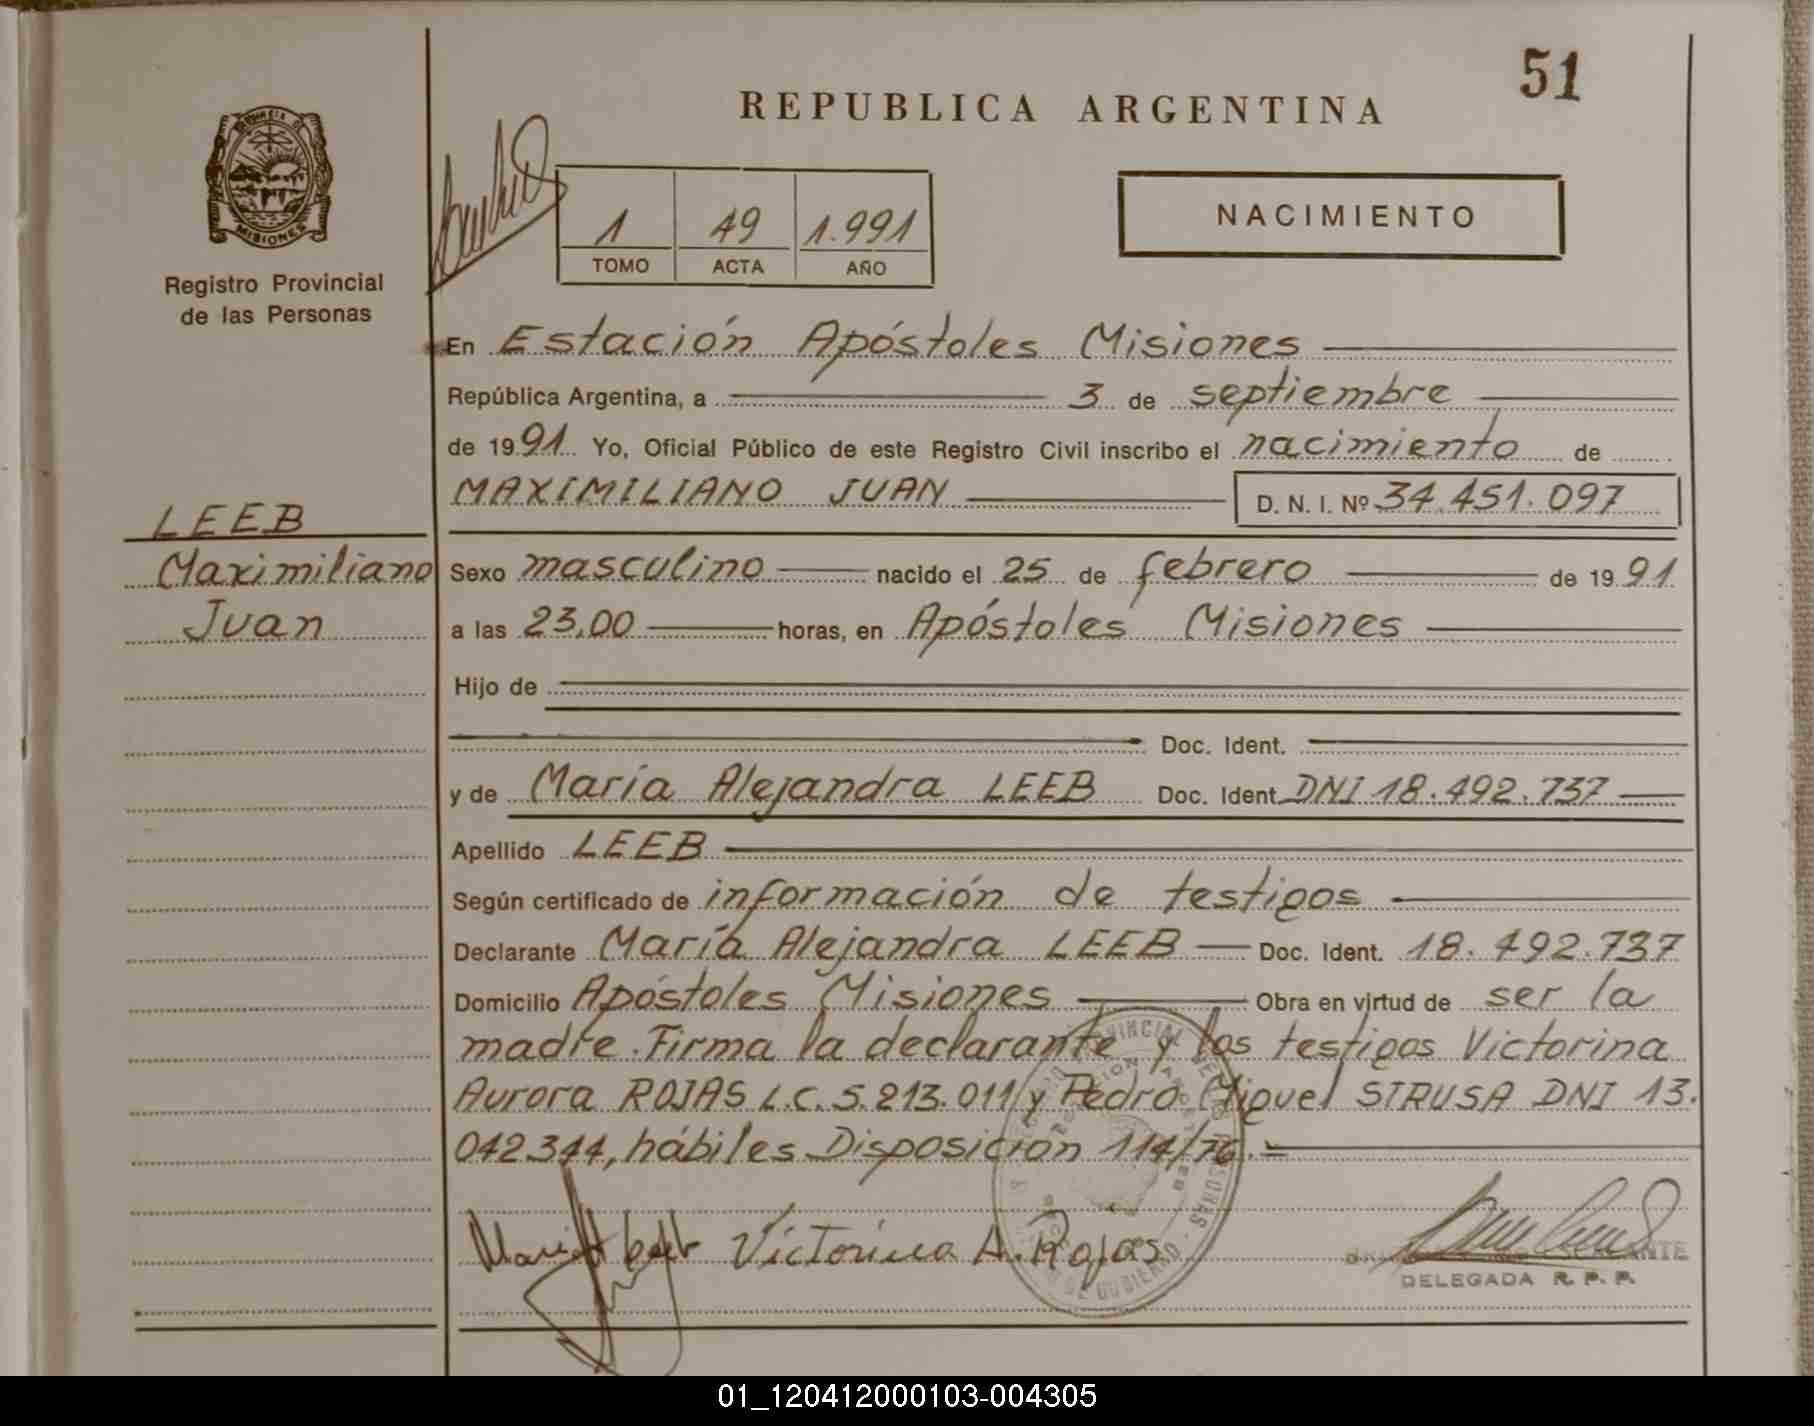 51
REPUBLICA ARGENTINA
MISIONES
Registro Provincial
de las Personas
1 49 1.991
TOMO ACTA AÑO
NACIMIENTO
En Estación Apóstoles Misiones
República Argentina, a 3 de septiembre
de 1991. Yo, Oficial Público de este Registro Civil inscribo el nacimiento de
MAXIMILIANO JUAN D. N. I. Nº 34.451.097
LEEB
Maximiliano
Juan
Sexo masculino nacido el 25 de febrero de 1991
a las 23,00 horas, en Apóstoles Misiones
Hijo de
Doc. Ident.
y de María Alejandra LEEB Doc. Ident. DNI 18.492.737
Apellido LEEB
Según certificado de información de testigos
Declarante María Alejandra LEEB Doc. Ident. 18.492.737
Domicilio Apóstoles Misiones Obra en virtud de ser la
madre. Firma la declarante y los testigos Victorina
Aurora ROJAS L.C. 5.213.011 y Pedro Miguel SIRUSA DNI 13.
042344, hábiles Disposición 114/76.-
Victorina A. Rojas
DELEGADA R. P. P.
01_120412000103-004305